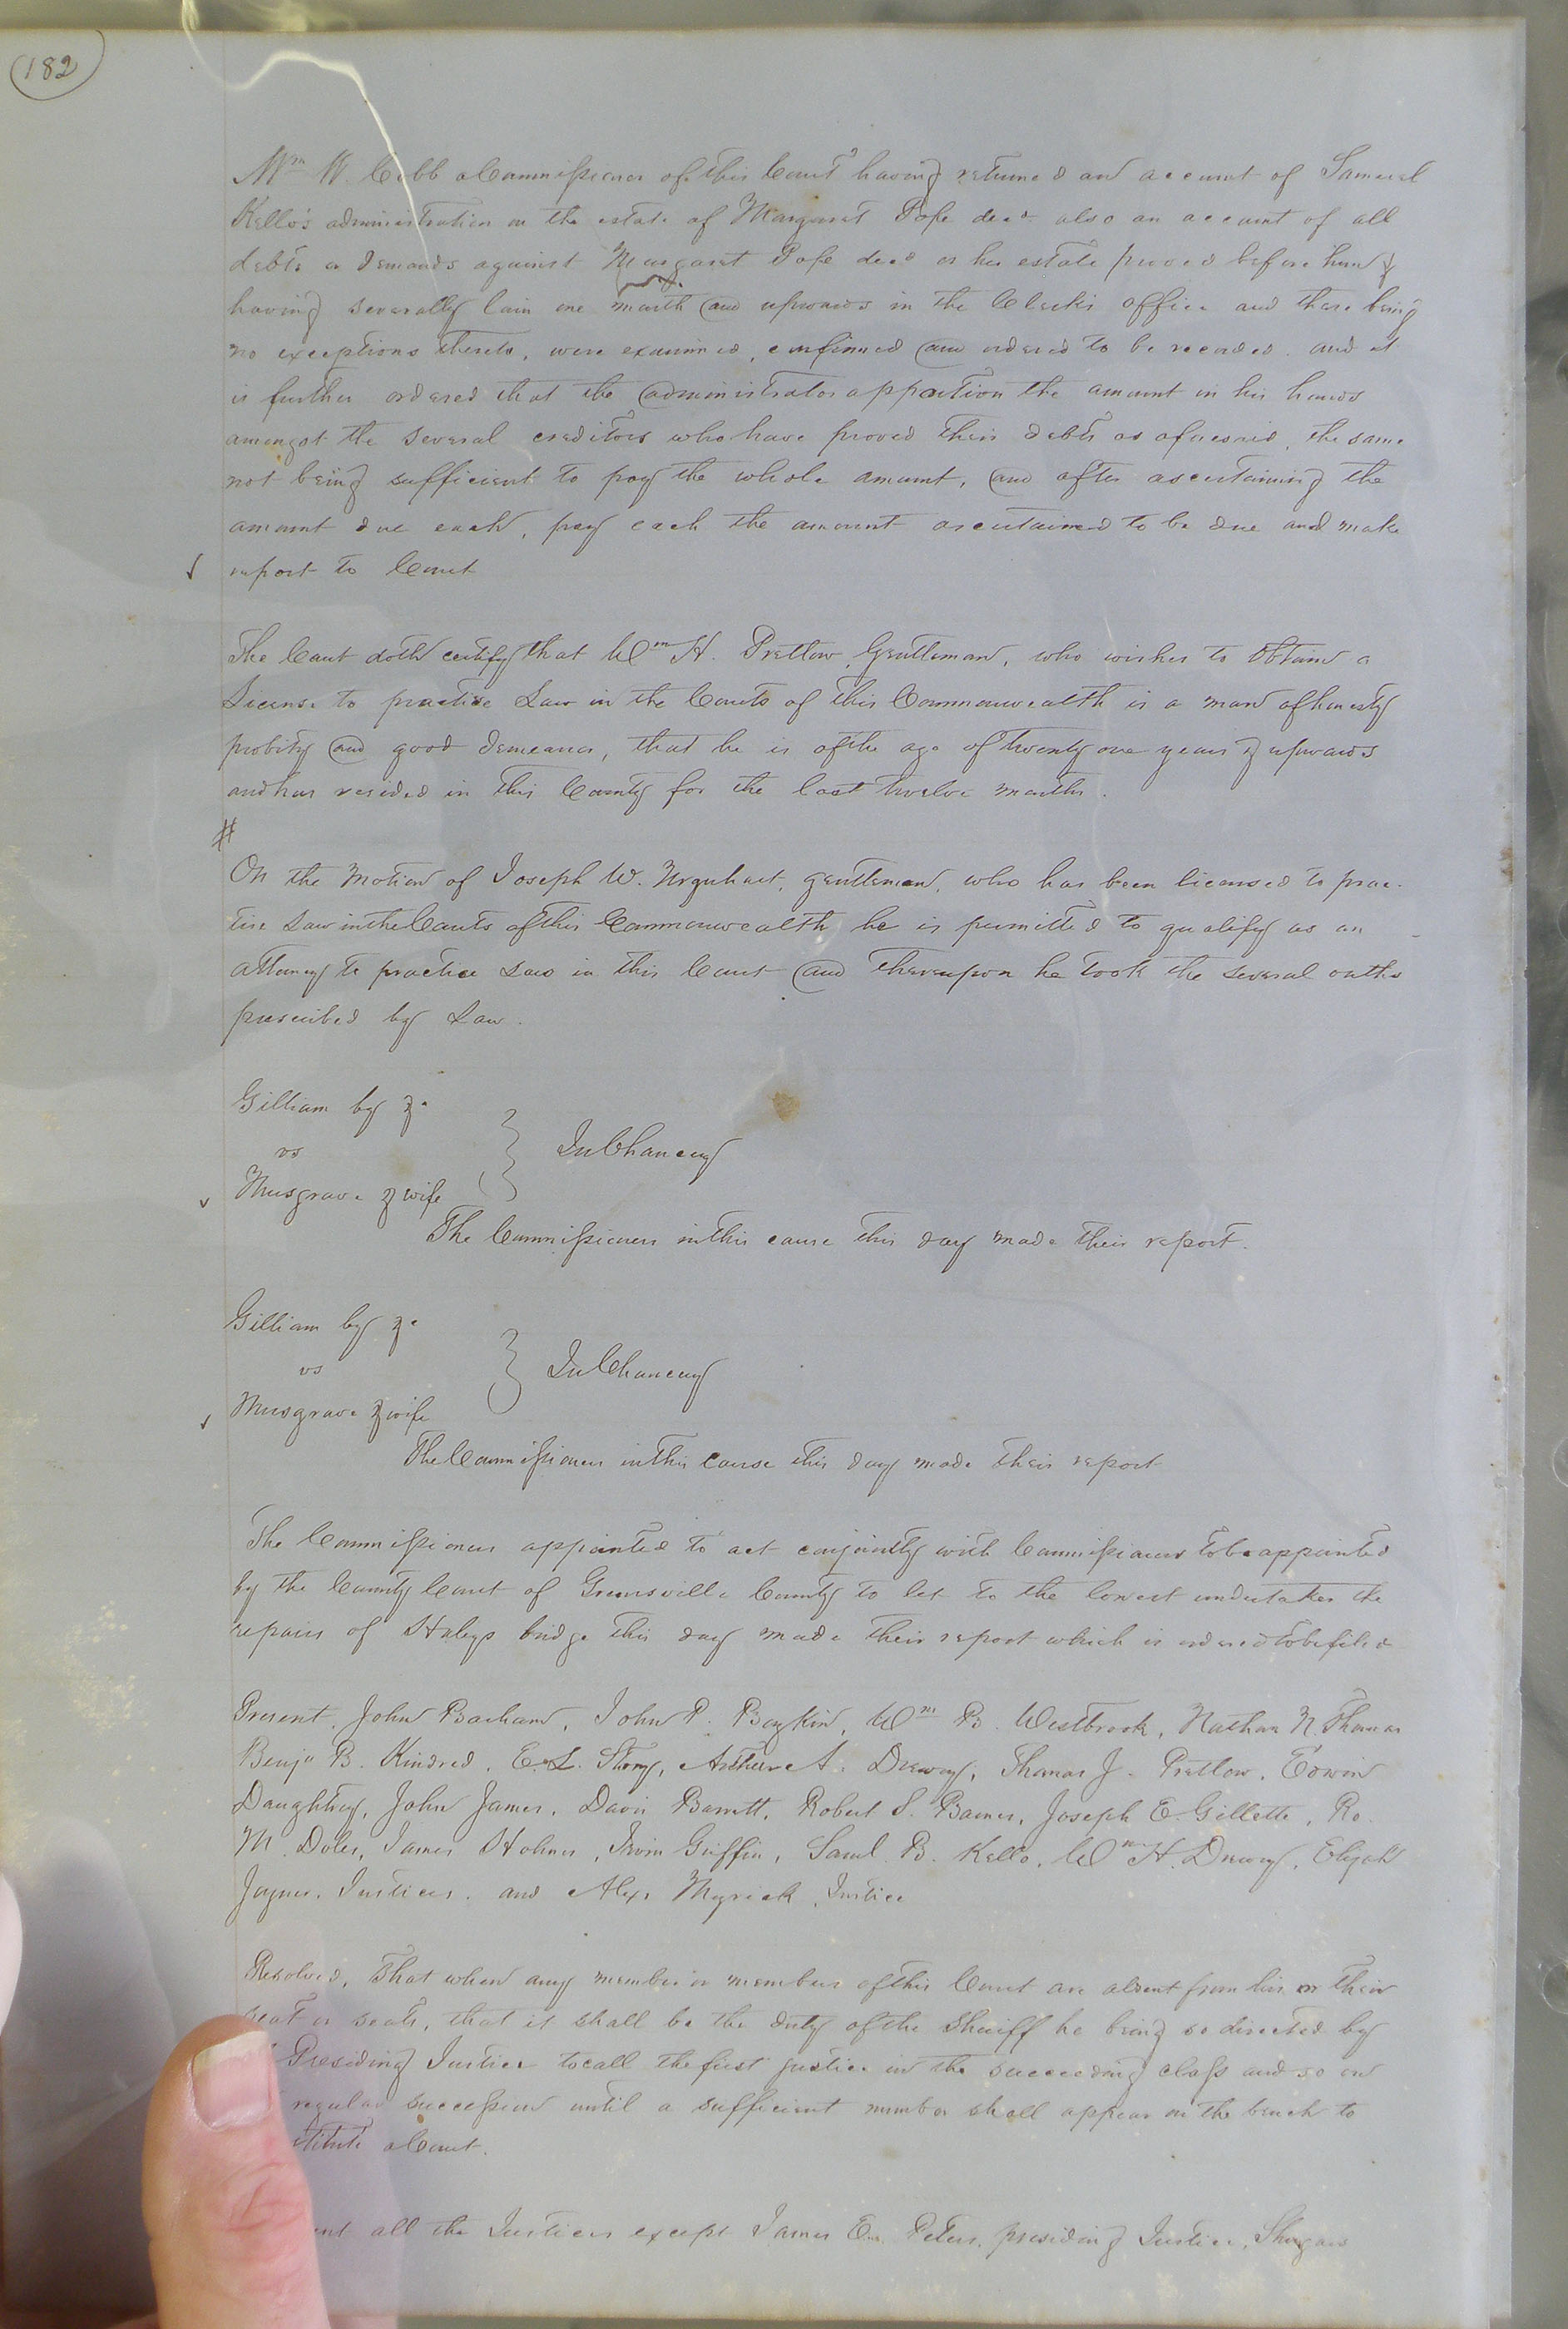 182
Wm W. Cobb a Commissioner of this Court having returned an account of Samuel
Kello's administration on the estate of Margaret Pope decd also an account of all
debts or demands against Margaret Pope decd or her estate proved before him &
having severally lain one month and upwards in the Clerks office and there being
no exceptions thereto, were examined, confirmed and ordered to be recorded. and it
is further ordered that the administrator apportion the amount in his hands
amongst the several creditors who have proved their debts as aforesaid, the same
not being sufficient to pay the whole amount, and after ascertaining the
amount due each, pay each the amount ascertained to be due and make
report to Court
The Court doth certify that Wm H. Pretlow, Gentleman, who wishes to obtain a
License to practice Law in the Courts of this Commonwealth is a man of honesty
probity and good demeanor, that he is of the age of twenty one years & upwards
and has resided in this County for the last twelve months.
#
On the motion of Joseph W. Urquhart, gentleman, who has been licensed to prac-
tice Law in the Courts of this Commonwealth he is permitted to qualify as an
attorney to practice Law in this Court and thereupon he took the several oaths
prescribed by Law.
Gilliam by &c
vs
Musgrave & wife
In Chancery
The Commissioners in this cause this day made their report.
Gilliam by &c
vs
Musgrave & wife
In Chancery
The Commissioners in this cause this day made their report
The Commissioners appointed to act conjointly with Commissioners to be appointed
by the County Court of Greensville County to let to the lowest undertaker the
repairs of Haleys bridge this day made their report which is ordered to be filed
Present, John Barham, John P. Boykin, Wm B. Westbrook, Nathan N. Thomas
Benja B. Kindred, E. L. Story, Arthur A. Drewry, Thomas J. Pretlow, Edwin
Daughtrey, John James, Davis Barrett, Robert S. Barnes, Joseph E. Gillette, Ro.
M. Doles, James Holmes, Irvin Griffin, Saml. B. Kello, Wm H. Drewry, Elijah
Joyner, Justices. and Alexr Myrick, Justice
Resolved, That when any member or members of this Court are absent from his or their
seat or seats, that it shall be the duty of the Sheriff he being so directed by
Presiding Justice to call the first justice in the succeeding class and so on
regular succession until a sufficient number shall appear on the bench to
stitute a Court.
ent all the Justices except James E. Peters, presiding Justice,